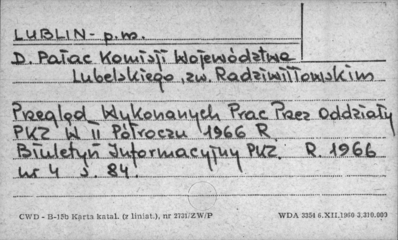 LUBLIN - p.m.
D. Pałac Komisji Województwa
Lubelskiego, zw. Radziwiłłowskim
Przegląd Wykonanych Prac Przez Oddziały
PKZ W II Półroczu 1966 R.
Biuletyn Informacyjny PKZ. R. 1966
nr 4 s. 84.
CWD - B-15b Karta katal. (z liniat.), nr 2721/ZW/P WDA 3354 6.XII.1960 2.210.000